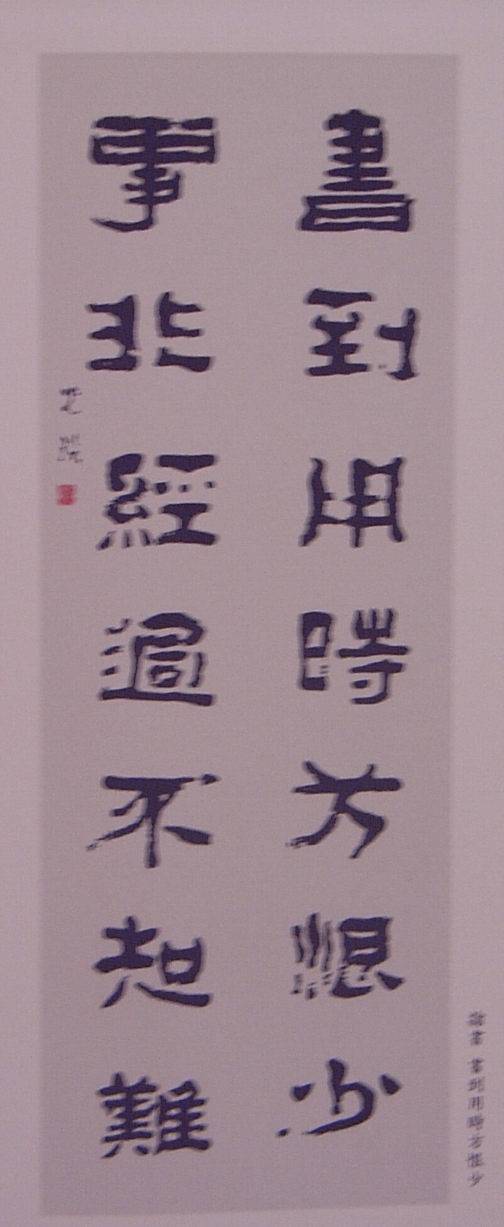 書到用時方恨少
事非經過不知難
隸書 書到用時方恨少